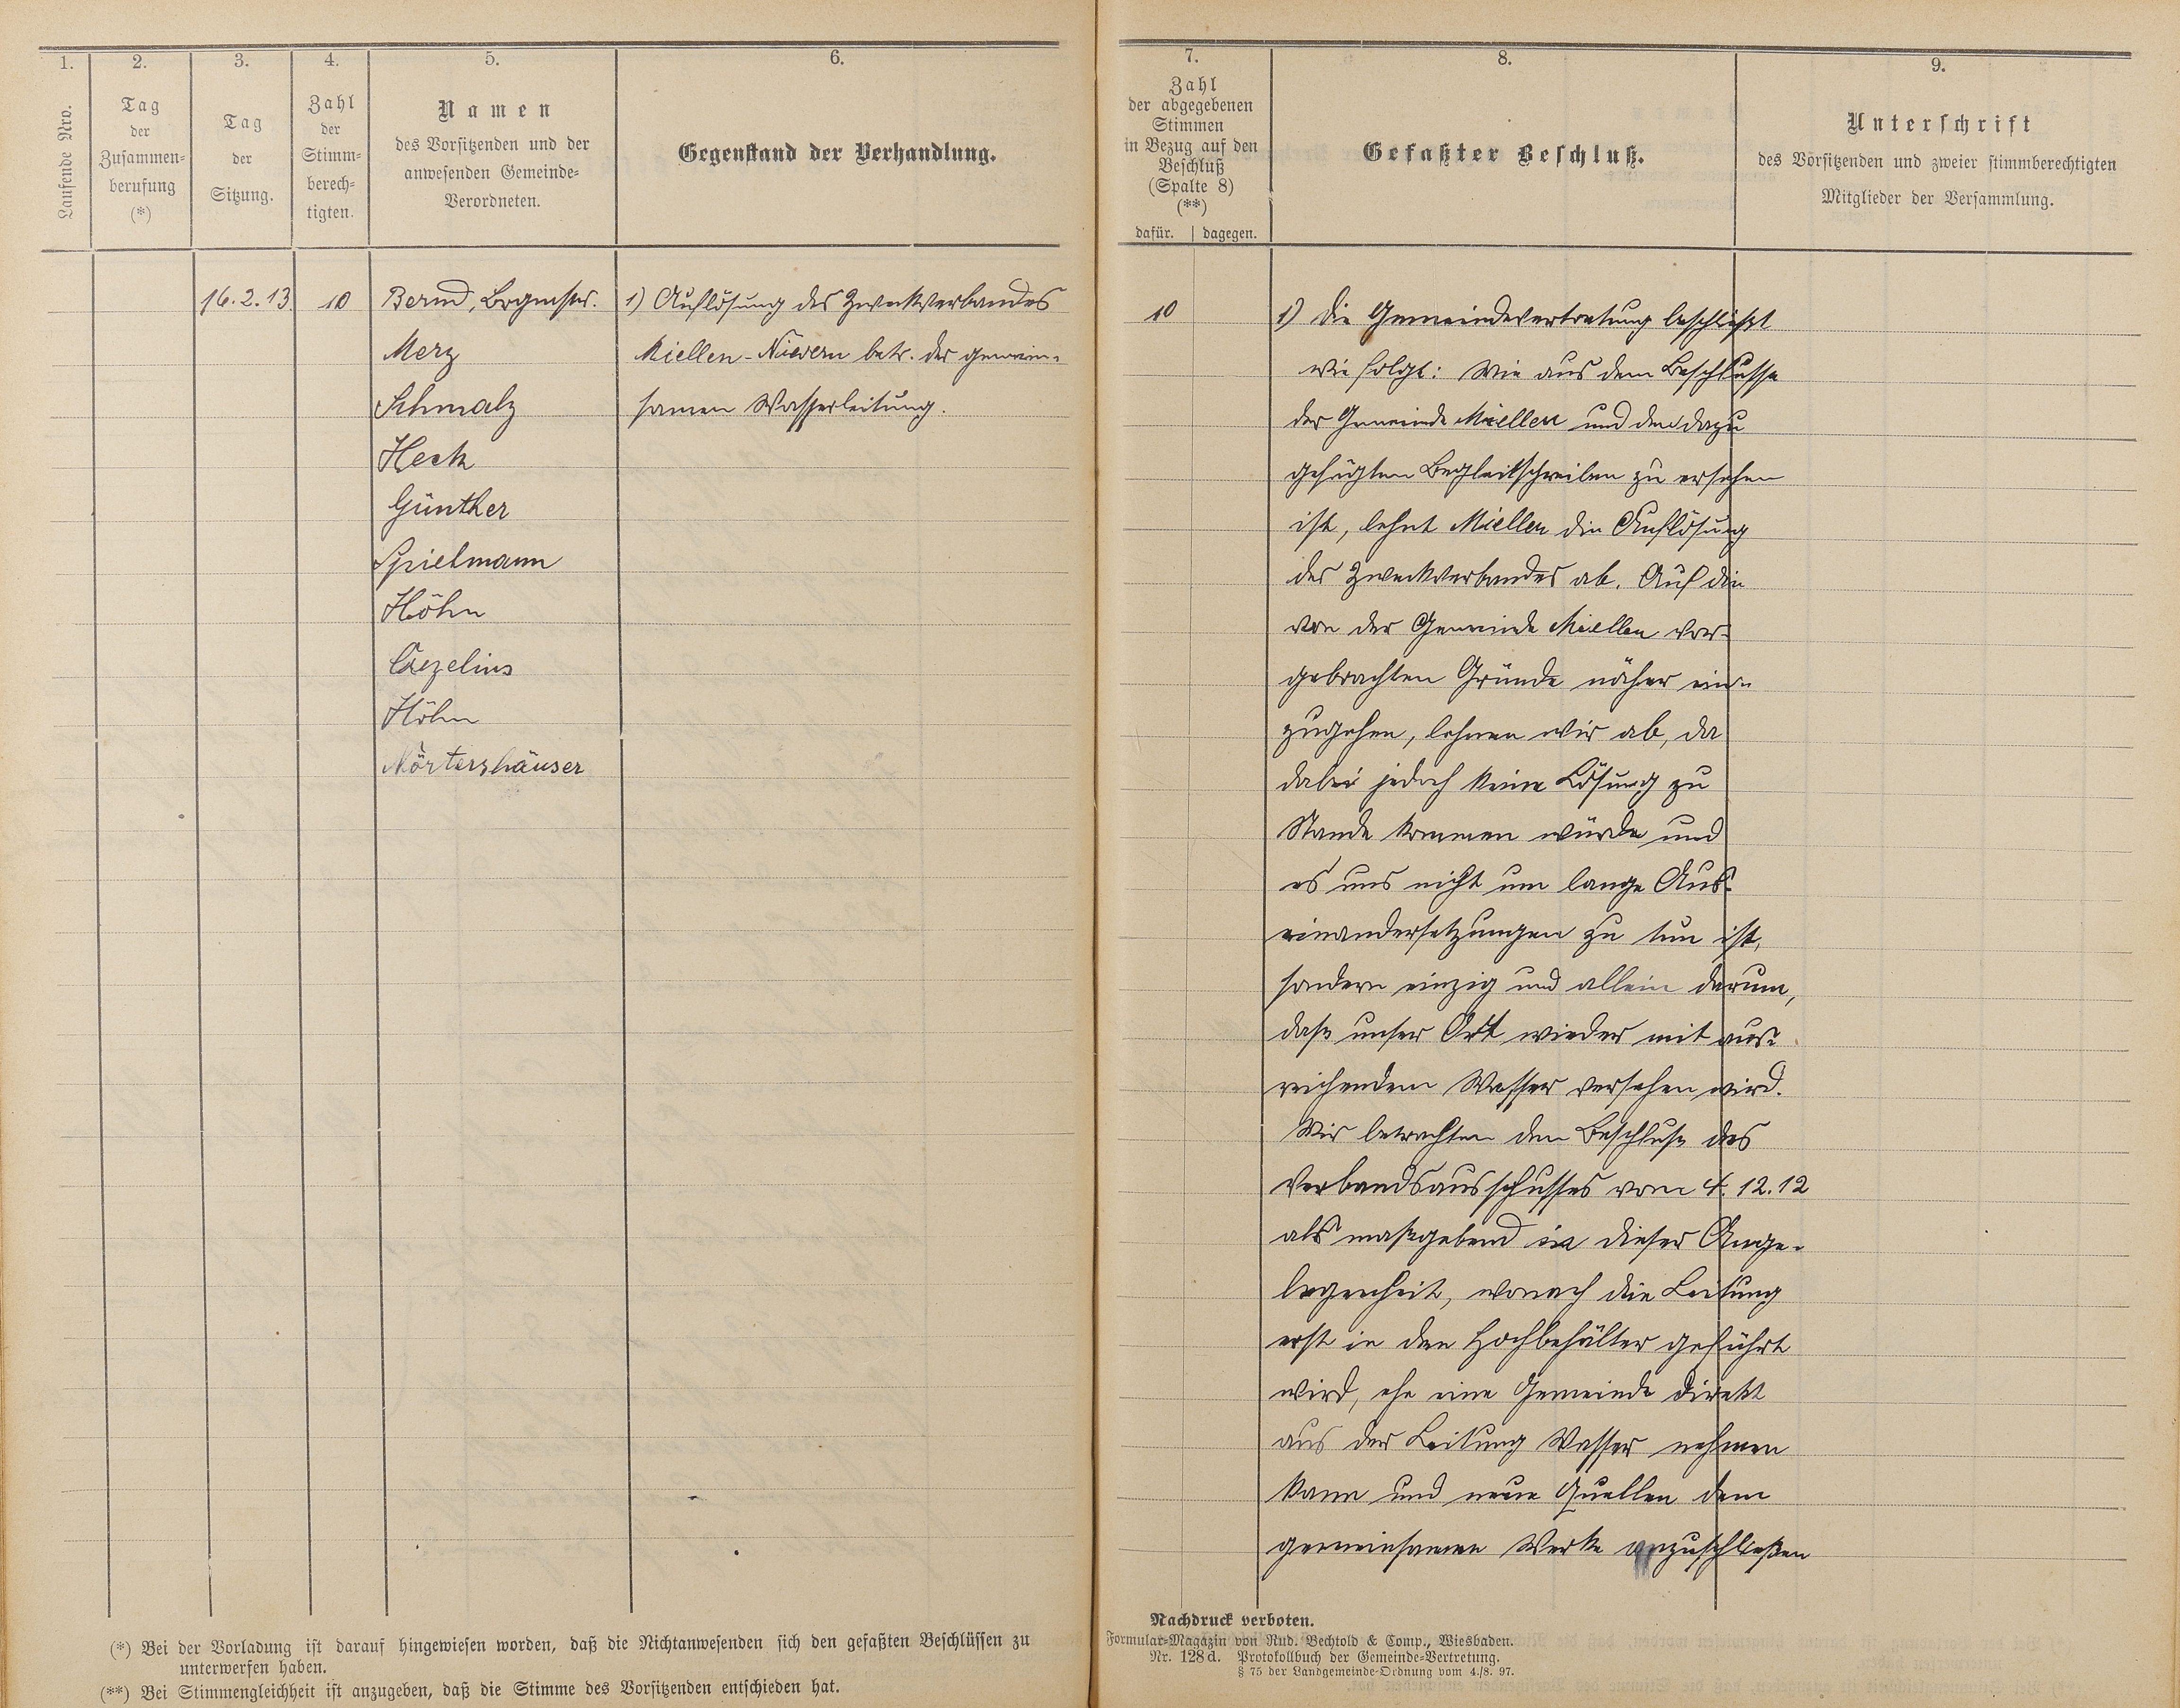 1.
Laufende Nro.
2.
Tag
der
Zusammen-
berufung
(*)
3.
Tag
der
Sitzung.
4.
Zahl
der
Stimm-
berech-
tigten.
5.
Namen
des Vorsitzenden und der
anwesenden Gemeinde-
Verordneten.
6.
Gegenstand der Verhandlung.
16.2.13.
10
Bernd, Brgmstr.
Merz
Schmalz
Heck
Günther
Spielmann
Höhn
Cezelius
Höhn
Mörtershäuser
1) Auflösung des Zweckverbandes
Miellen-Nievern betr. der gemein-
samen Wasserleitung.
(*) Bei der Vorladung ist darauf hingewiesen worden, daß die Nichtanwesenden sich den gefaßten Beschlüssen zu
unterwerfen haben.
(**) Bei Stimmengleichheit ist anzugeben, daß die Stimme des Vorsitzenden entschieden hat.
7.
Zahl
der abgegebenen
Stimmen
in Bezug auf den
Beschluß
(Spalte 8)
(**)
dafür. | dagegen.
8.
Gefaßter Beschluß.
9.
Unterschrift
des Vorsitzenden und zweier stimmberechtigten
Mitglieder der Versammlung.
10
1) Die Gemeindevertretung beschließt
wie folgt: Wie aus dem Beschlusse
der Gemeinde Miellen und dem dazu
gefügten Begleitschreiben zu ersehen
ist, lehnt Miellen die Auflösung
des Zweckverbandes ab. Auf die
von der Gemeinde Miellen vor-
gebrachten Gründe näher ein-
zugehen, lehnen wir ab, da
dabei jedoch keine Lösung zu
Stande kommen würde und
es uns nicht um lange Aus-
einandersetzungen zu tun ist,
sondern einzig und allein darum,
daß unser Ort wieder mit aus-
reichendem Wasser versehen wird.
Wir betrachten den Beschluß des
Verbandsausschusses vom 4.12.12
als maßgebend in dieser Ange-
legenheit, wonach die Leitung
erst in den Hochbehälter geführt
wird, ehe eine Gemeinde direkt
aus der Leitung Wasser nehmen
kann und neue Quellen dem
gemeinsamen Werke anzuschließen
Nachdruck verboten.
Formular-Magazin von Rud. Bechtold & Comp., Wiesbaden.
Nr. 128d. Protokollbuch der Gemeinde-Vertretung.
§ 75 der Landgemeinde-Ordnung vom 4./8. 97.